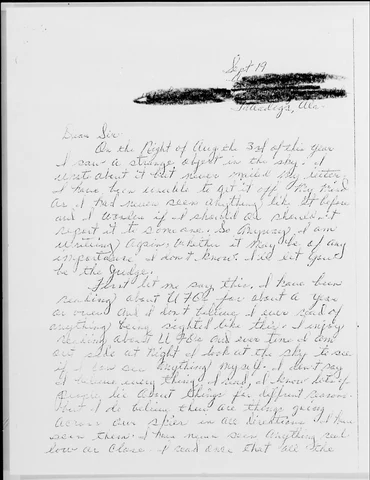 Sept 19
Talladega, Ala.
Dear Sir
On the Night of Aug the 3rd of this year
I saw a strange object in the sky. I
wrote about it but never mailed my letter.
I have been unable to get it off my mind
As I had never seen anything like it before
and I wonder if I should are should it
report it to someone. So Anyway I am
writing again. Whether it may be of any
importance I don't know. I'll let you
be the Judge.
First let me say this. I have been
reading about UFOs for about a year
or over and I don't believe I ever read of
anything being sighted like this. I enjoy
reading about UFOs and ever time I am
out side at night I look at the sky to see
if I can see anything myself. I don't say
I believe every thing I read, I know lots of
People lie about things for different reasons.
But I do believe there are things going
across our skies in all directions. I have
seen them. I have never seen anything real
low or close. I read once that all the